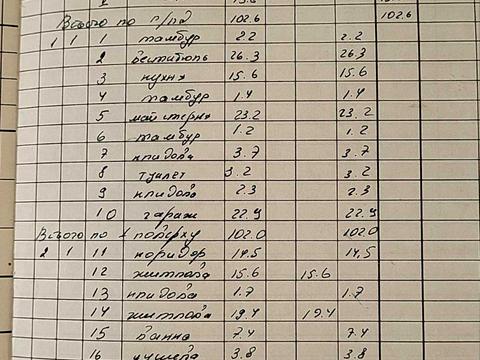 Всього по п/пд 102.6 102.6
1 1 1 тамбур 2.2 2.2
2 вестибюль 26.3 26.3
3 кухня 15.6 15.6
4 тамбур 1.4 1.4
5 майстерня 23.2 23.2
6 тамбур 1.2 1.2
7 кридова 3.7 3.7
8 туалет 3.2 3.2
9 кридова 2.3 2.3
10 гараж 22.9 22.9
Всього по 1 поверху 102.0 102.0
2 1 11 коридор 14.5 14.5
12 житлова 15.6 15.6
13 кридова 1.7 1.7
14 житлова 19.4 19.4
15 ванна 7.4 7.4
16 3.8 3.8